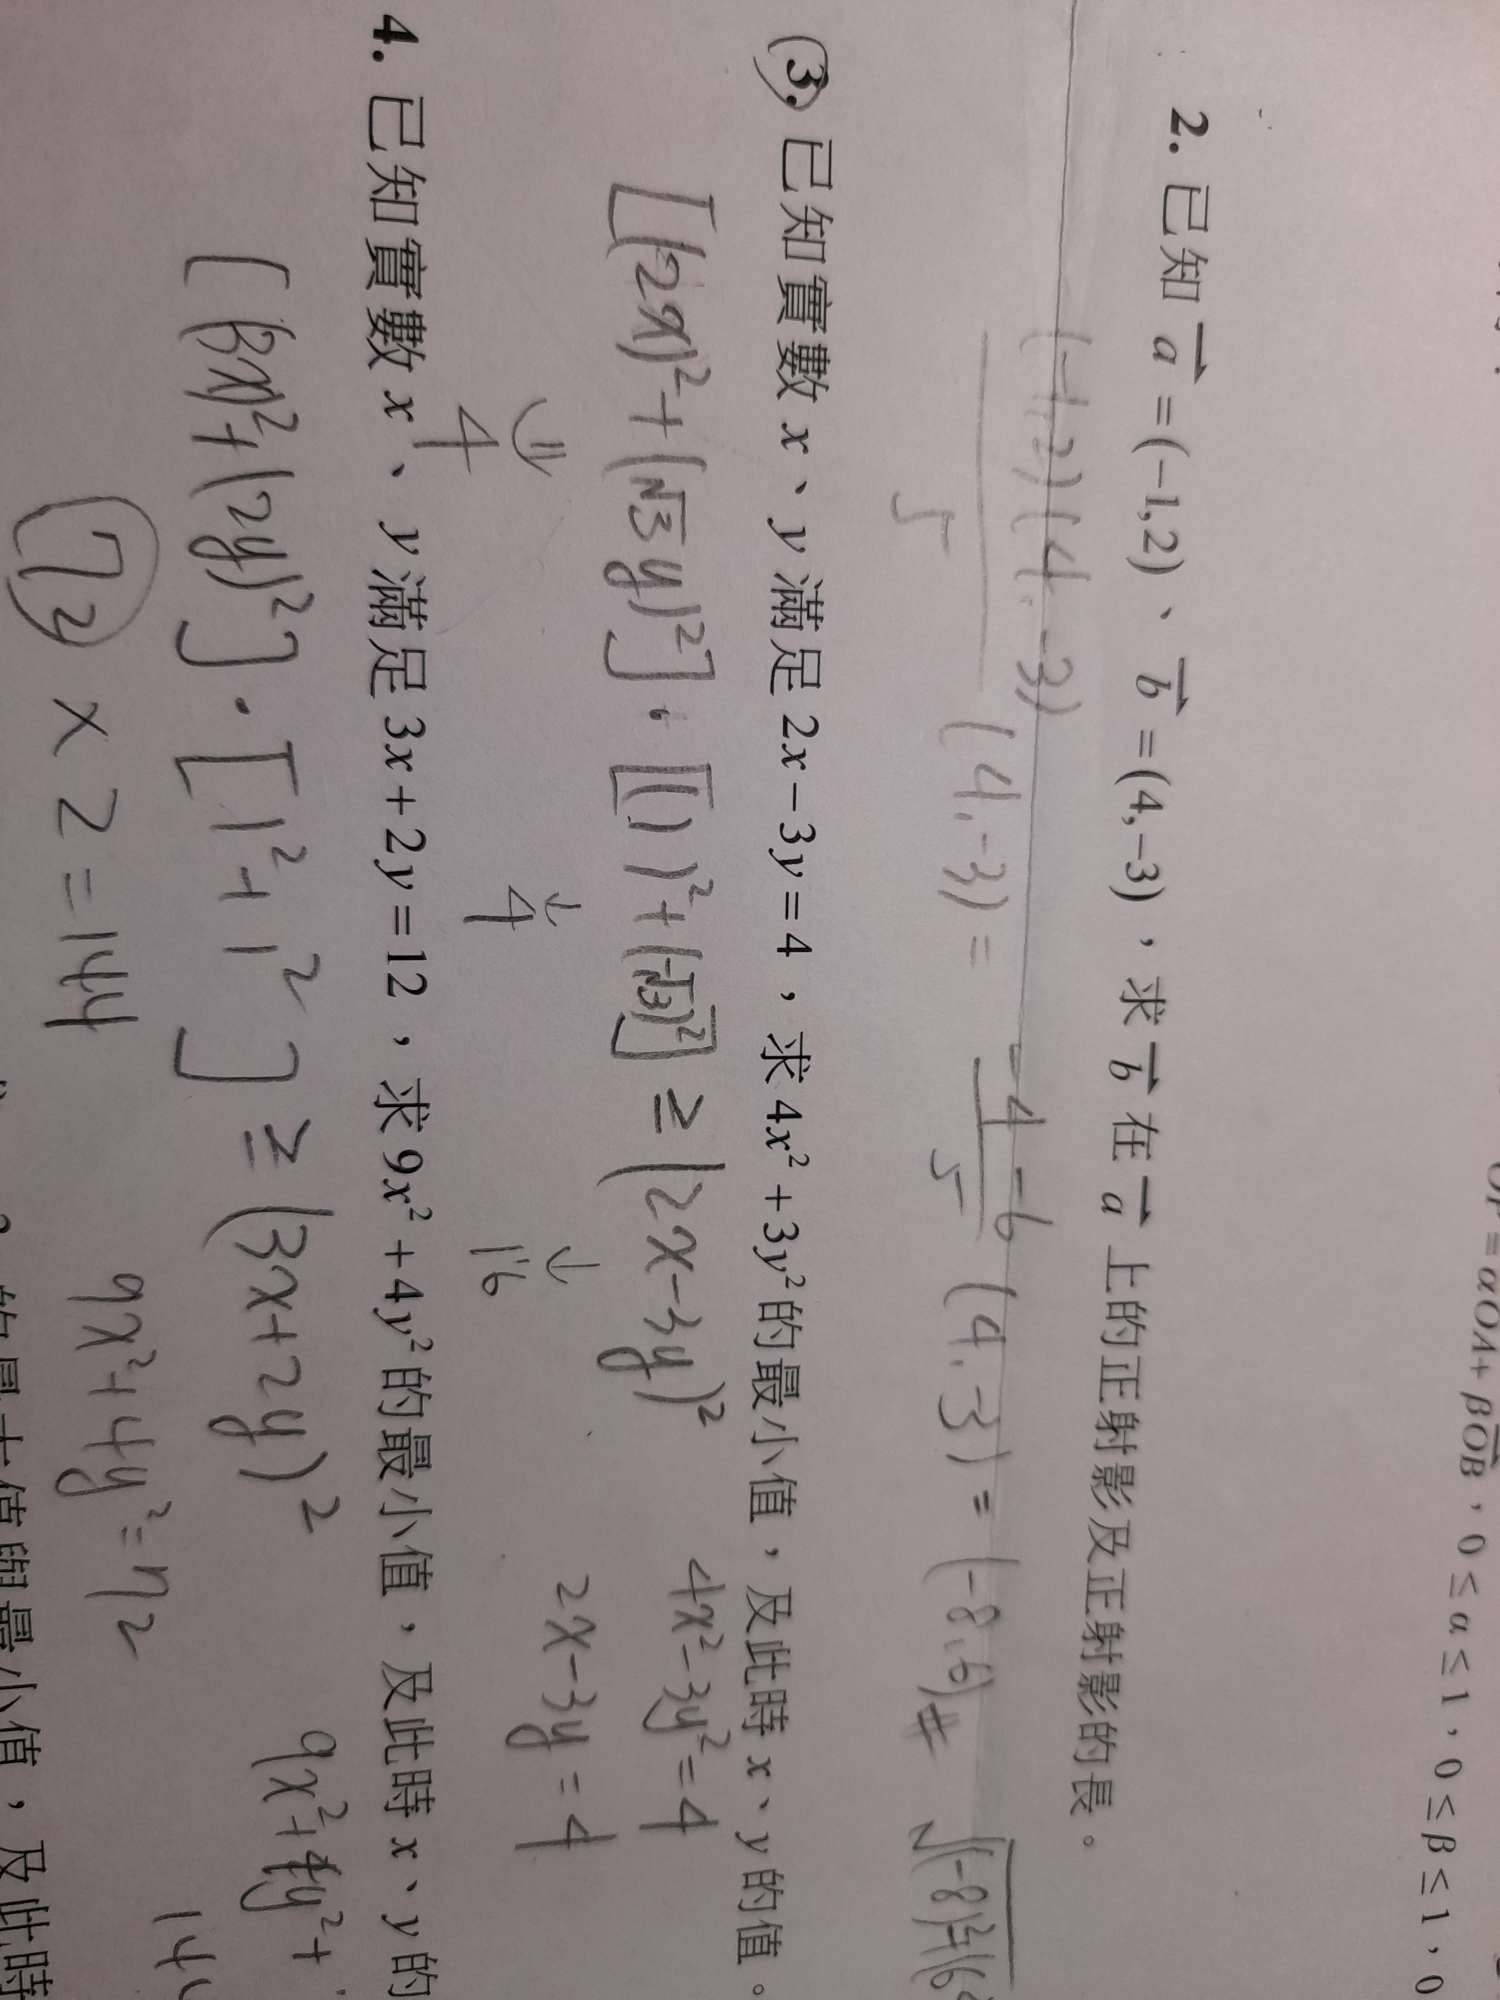 = αOA + βOB，0 ≤ α ≤ 1，0 ≤ β ≤ 1，0
2. 已知 a = (-1,2)、b = (4,-3)，求 b 在 a 上的正射影及正射影的長。
(-1,2)(4,-3)
5
(4,-3) =
-4-6
5
(4,-3) = (-8,6)#
3. 已知實數 x、y 滿足 2x - 3y = 4，求 4x² + 3y² 的最小值，及此時 x、y 的值。
[(2x)² + (√3y)²]·[(1)² + (-√3)²] ≥ (2x-3y)²
4x²-3y²=4
⇓ ↓ ↓
4 4 16
2x-3y=4
4. 已知實數 x、y 滿足 3x + 2y = 12，求 9x² + 4y² 的最小值，及此時 x、y 的
[(3x)²+(2y)²]·[1²+1²] ≥ (3x+2y)²
9x²+4y²+
72 x 2 = 144
9x²+4y²=72
14
的最大值與最小值，及此時